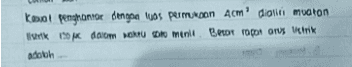 Kawat penghantar dengan luas permukaan 4cm² dialiri muatan
listrik 120 μC dalam waktu satu menit. Besar rapat arus listrik
adalah ....